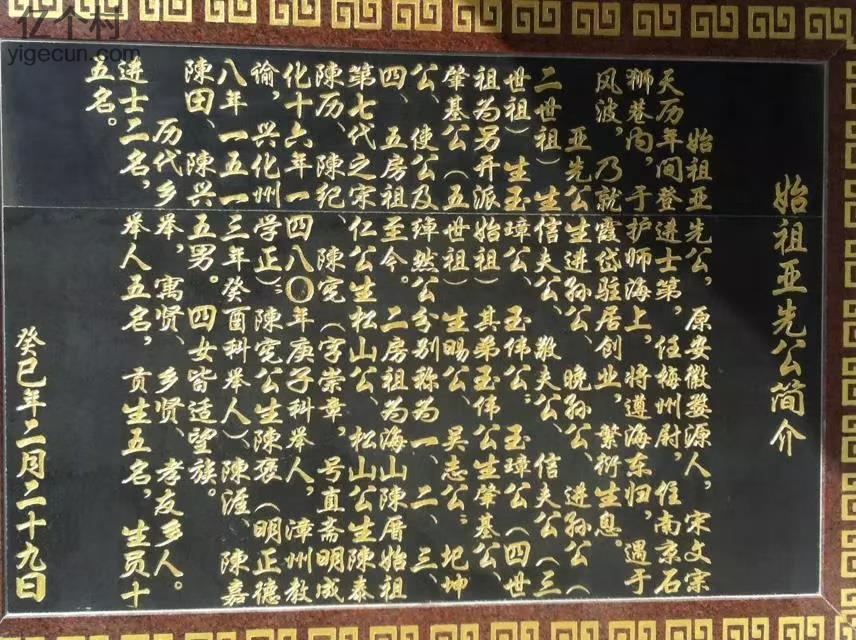 亿个村
yigecun.com
始祖亚先公简介
始祖亚先公，原安徽婺源人，宋文宗
天历年间登进士第，任梅州尉，住南京石
狮巷内，于护师海上，将遵海东归，遇于
风波，乃就霞岱驻居创业，繁衍生息。
亚先公生进孙公、晚孙公，进孙公（
二世祖）生信夫公、敬夫公，信夫公（三
世祖）生玉璋公、玉伟公；玉璋公（四世
祖为另开派始祖）其弟玉伟公生肇基公、
肇基公（五世祖）生賜公、吴志公、圯坤
公、使公及绰然公分别称为一、二、三、
四、五房祖至今。二房祖为海山陳厝始祖
第七代之宋仁公生松山公、松山公生陳泰
陳历、陳纪、陳宪（字崇章，号直斋明成
化十六年一四八〇年庚子科举人，漳州教
谕，兴化州学正）；陳宪公生陳褒（明正德
八年一五一三年癸酉科举人）陳涯、陳嘉
陳田、陳兴五男。四女皆适望族。
历代乡举，寓贤、乡贤、孝友乡人。
进士二名，举人五名，贡生五名，生员十
五名。
癸巳年二月二十九日